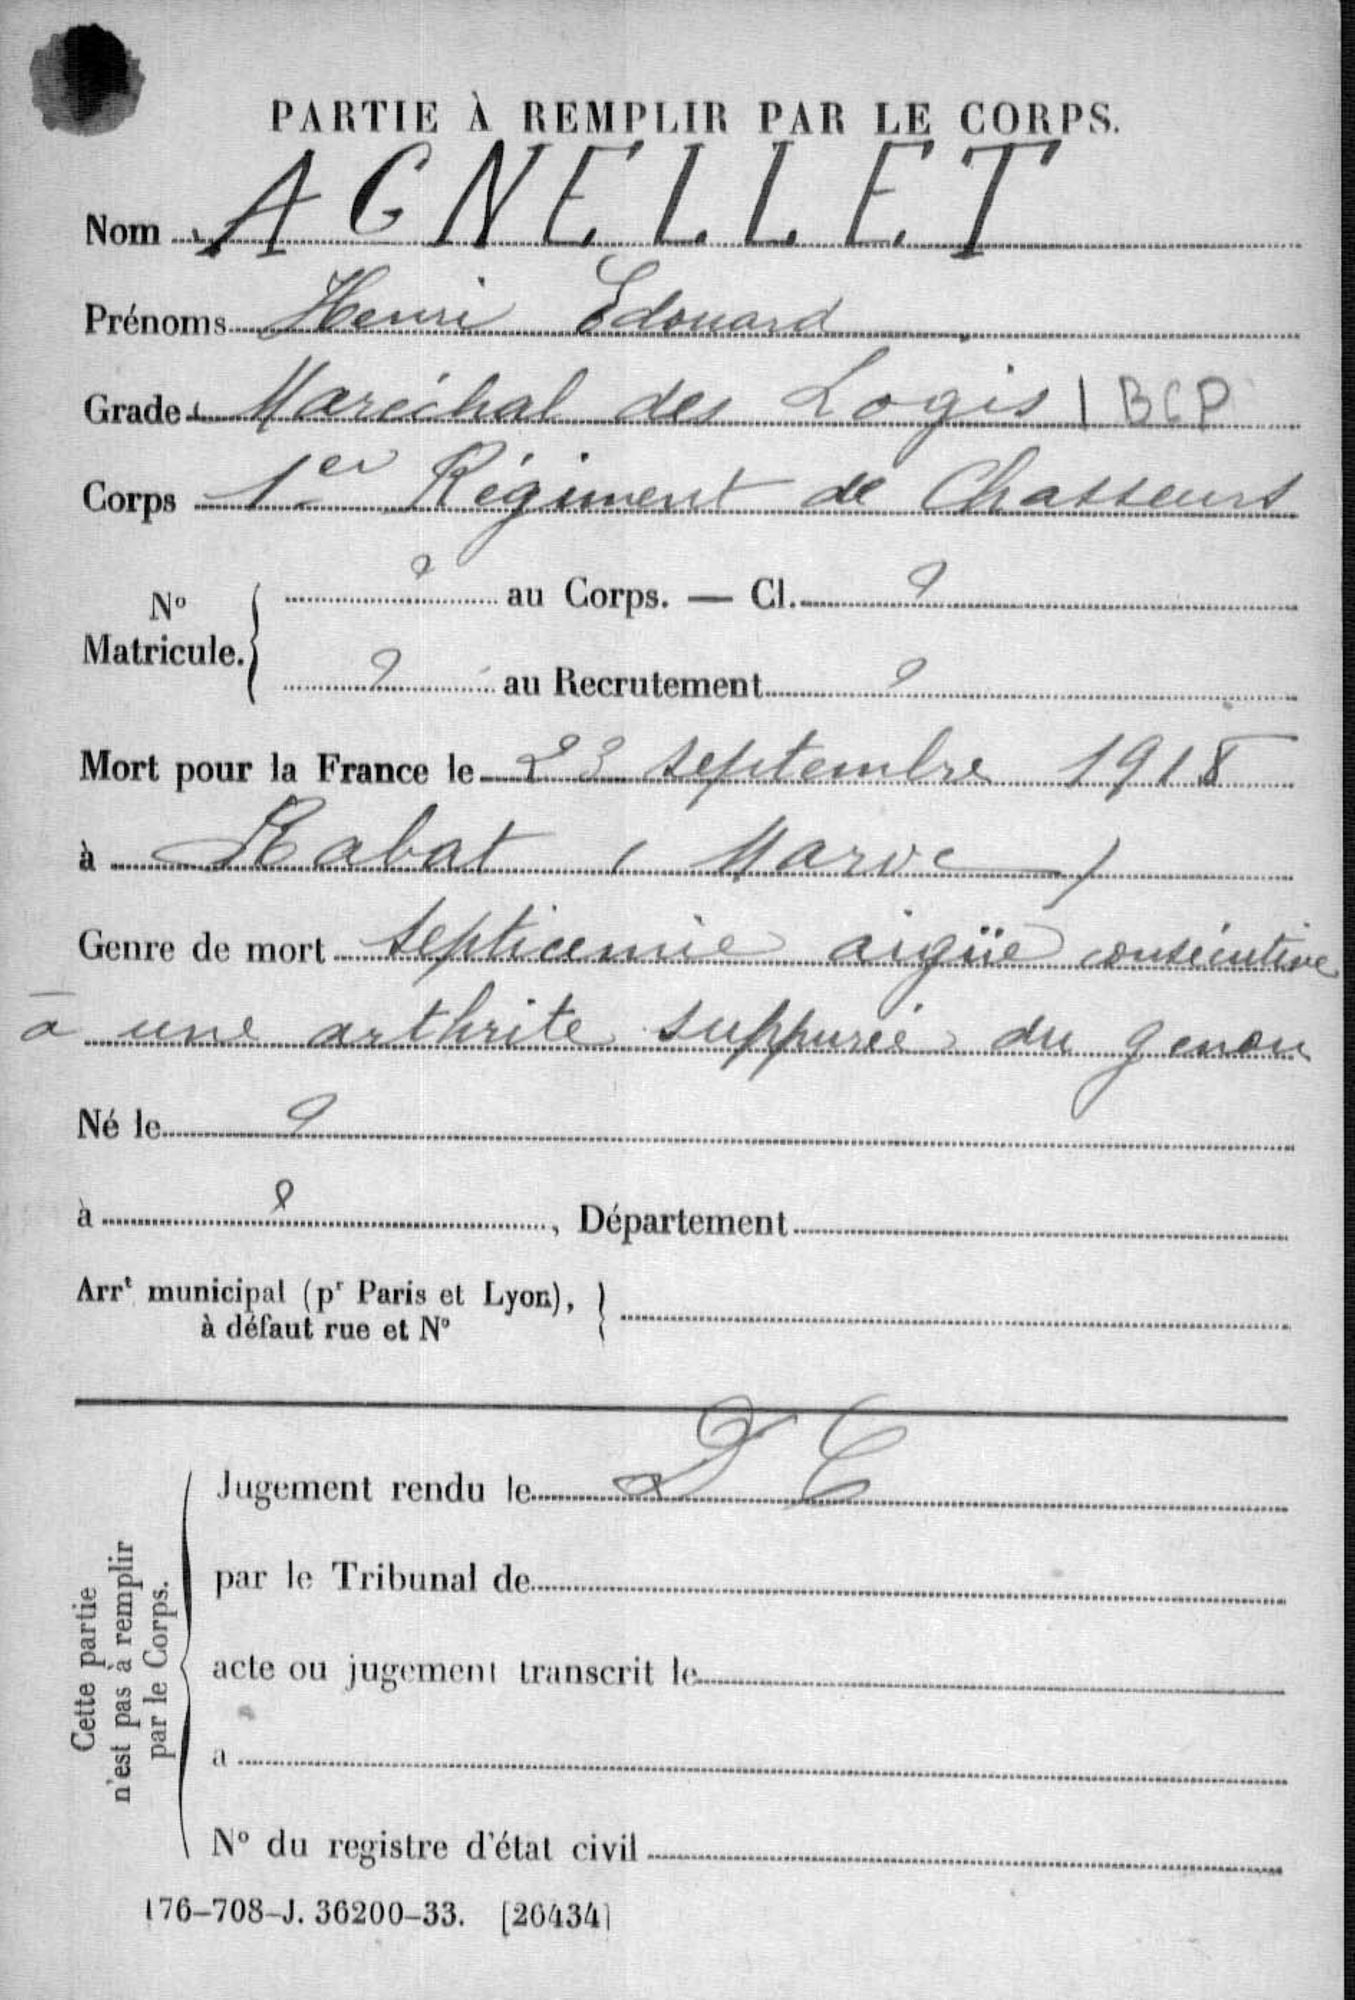 PARTIE À REMPLIR PAR LE CORPS.
Nom AGNELLET
Prénoms Henri Edouard
Grade Maréchal des Logis | BCP
Corps 1er Régiment de Chasseurs
No Matricule. { ? au Corps. — Cl. ?
? au Recrutement ?
Mort pour la France le 23 septembre 1918
à Rabat (Maroc)
Genre de mort septicemie aigüe consécutive
à une arthrite suppurée du genou
Né le ?
à ?, Département
Arrt municipal (pr Paris et Lyon), }
à défaut rue et No
Cette partie
n'est pas à remplir
par le Corps.
Jugement rendu le D C
par le Tribunal de
acte ou jugement transcrit le
à
No du registre d'état civil
176-708-J. 36200-33. [26434]